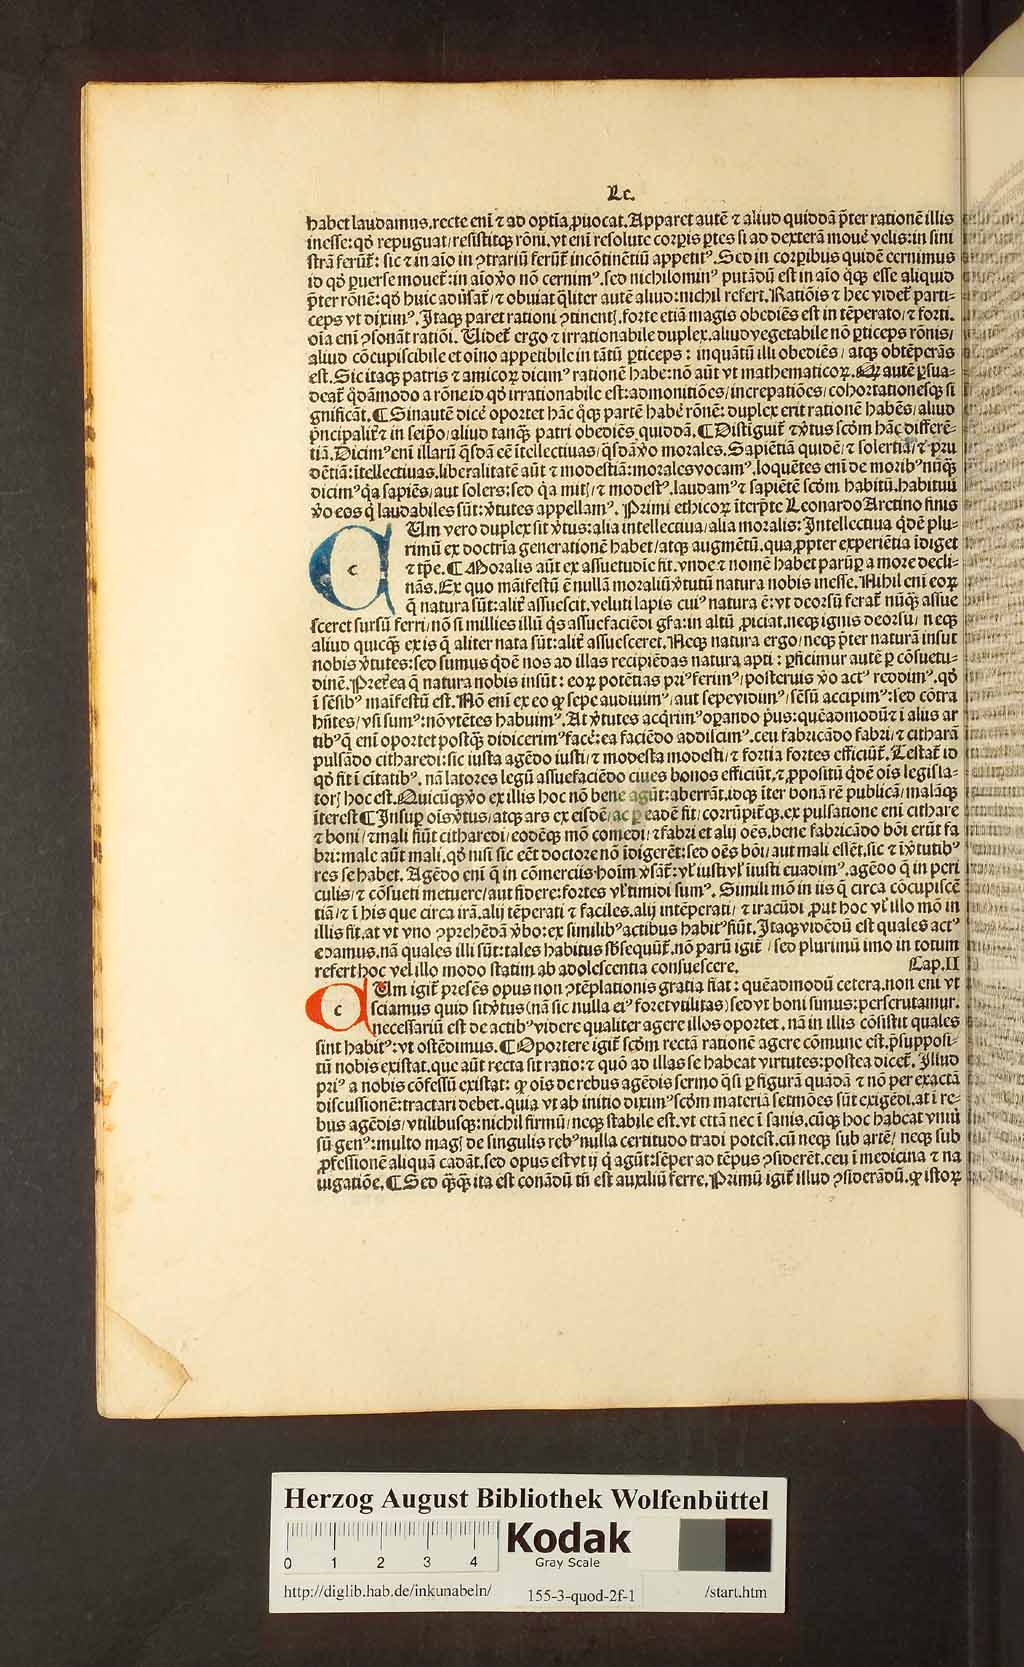 Lc.
habet laudamus.recte eni ̃⁊ ad optĩa ꝓuocat.Apparet autẽ ⁊ aliud quiddã p̃ter rationẽ illis
inesse: qd̕ repugnat/resistitqꝫ rõni.vt eni ̃resolute corpis ꝑtes si ad dexterã mouẽ velis:in sini
strã ferũt̃: sic ⁊ in aĩo in ꝯtrariũ ferũt̃ incõtinẽtiũ appetitꝰ.Sed in corꝑibus quidẽ cernimus
id qd̕ ꝑuerse mouet̃:in aĩo v̕o nõ cernimꝰ.sed nichilominꝰ putãdũ est in aĩo qͥqꝫ esse aliquid
p̃ter rõnẽ: qd̕ huic aduersat̃/⁊ obuiat qͣliter autẽ aliud:nichil refert.Ratiõis ⁊ hec videt̃ parti-
ceps vt diximꝰ.Itaqꝫ paret rationi ꝯtinentꝭ.forte etiã magis obediẽs est in tẽperato/⁊ forti.
oĩa eni ̃ꝯsonãt ratiõi. Uidet̃ ergo ⁊ irrationabile duplex.aliud vegetabile nõ ꝑticeps rõnis/
aliud cõcupiscibile et oĩno appetibile in tãtũ ꝑticeps: inquãtũ illi obediẽs/atqꝫ obtẽperãs
est.Sic itaqꝫ patris ⁊ amicoꝝ dicimꝰ rationẽ habẽ:nõ aũt vt mathematicoꝝ.Qꝙ autẽ ꝑsua-
deat̃ qͦdãmodo a rõne id qd̕ irrationabile est:admonitiões/increpatiões/cohortationesqꝫ si
gnificãt.¶Sin autẽ dicẽ oportet hãc qͦqꝫ partẽ habẽ rõnẽ: duplex erit rationẽ habẽs/aliud
p̃ncipalit̃ ⁊ in seip̃o/aliud tanqꝫ patri obediẽs quiddã.¶Distiguit̃ ⁊ v̕tus scd̕m hãc differẽ-
tiã.Dicimꝰ eni ̃illarũ qͣsdã eẽ ĩtellectiuas/qͣsdã v̕o morales.Sapiẽtiã quidẽ/⁊ solertiã/⁊ pru
dẽtiã:ĩtellectiuas.liberalitatẽ aũt ⁊ modestiã:morales vocamꝰ.loquẽtes eni ̃de moribꝰ nũqͣꝫ
dicimꝰ qͣ sapiẽs/aut solers:sed qͣ mitꝭ/⁊ modestꝰ.laudamꝰ ⁊ sapiẽtẽ scd̕m habitũ.habituũ
v̕o eos qͥ laudabiles sũt:v̕tutes appellamꝰ. Primi ethicoꝝ ĩterp̃te Leonardo Aretino finis
c
CUm vero duplex sit v̕tus:alia intellectiua/alia moralis: Intellectiua qͥdẽ plu-
rimũ ex doctrĩa generationẽ habet/atqꝫ augmẽtũ.qua ꝓpter experiẽtia ĩdiget
⁊ tp̃e.¶Moralis aũt ex assuetudĩe fit.vnde ⁊ nomẽ habet parũꝑ a more decli-
nãs.Ex quo mãifestũ ẽ nullã moraliũ v̕tutũ natura nobis inesse.Nihil eni ̃eoꝝ
q̃ natura sũt:alit̃ assuescit.veluti lapis cuiꝰ natura ẽ:vt deorsũ ferat̃ nũqͣꝫ assue
sceret sursũ ferri/nõ si millies illũ qͥs assuefaciẽdi gr̃a:in altũ ꝓiciat.neqꝫ ignis deorsũ/neqꝫ
aliud quicqͣꝫ ex is q̃ aliter nata sũt:alit̃ assuesceret.Neqꝫ natura ergo/neqꝫ p̃ter naturã insũt
nobis v̕tutes:sed sumus qͥdẽ nos ad illas recipiẽdas natura apti: ꝑficimur autẽ ꝑ cõsuetu-
dinẽ.Preterea q̃ natura nobis insũt: eoꝝ potẽtias priꝰ ferimꝰ/posterius v̕o actꝰ reddimꝰ.qd̕
ĩ sẽsibꝰ maĩfestũ est.Nõ eni ̃ex eo qꝙ sepe audiuimꝰ/aut sepe vidimꝰ/sẽsũ accipimꝰ:sed cõtra
hñtes/vsi sumꝰ:nõ vtẽtes habuimꝰ.At v̕tutes acqͥrimꝰ oꝑando priꝰus:quẽadmodũ ⁊ ĩ aliis ar
tibꝰ q̃ eni ̃oportet postqͣꝫ didicerimꝰ facẽ:ea faciẽdo addiscimꝰ.ceu fabricãdo fabri/⁊ citharã
pulsãdo citharedi:sic iusta agẽdo iusti/⁊ modesta modesti/⁊ fortia fortes efficiũt̃.Testat̃ id
qd̕ fit ĩ ciuitatibꝰ. nã latores legũ assuefaciẽdo ciues bonos efficiũt.⁊ ꝓpositũ qͥdẽ oĩs legisla-
torꝭ hoc est.Quicũqꝫ v̕o ex illis hoc nõ bene agũt:aberrãt.idqꝫ ĩter bonã rẽ publicã/malãqꝫ
ĩterest¶Insuꝑ oĩs v̕tus/atqꝫ ars ex eisdẽ/ac ꝑ eadẽ fit/corrũpit̃qꝫ.ex pulsatione eni ̃cithare
⁊ boni/⁊ mali fiũt citharedi/eodẽqꝫ mõ comedi/⁊ fabri et alij oẽs.bene fabricãdo bõi erũt fa
bri:male aũt mali.qd̕ nisi sic eẽt doctore nõ ĩdigerẽt:sed oẽs bõi/aut mali essẽt.sic ⁊ ĩ v̕tutibꝰ
res se habet. Agẽdo eni ̃q̃ in cõmerciis hoĩm v̕sãt̃:vl̕ iusti vl̕ iniusti euadimꝰ.agẽdo q̃ in peri
culis/⁊ cõsueti metuere/aut fidere:fortes vl̕ timidi sumꝰ. Simili mõ in iis q̃ circa cõcupiscẽ
tiã/⁊ ĩ his que circa irã.alij tẽperati ⁊ faciles.alij intẽperati/⁊ iracũdi ꝓut hoc vl̕ illo mõ in
illis fit.at vt vno ꝯprehẽdã v̕bo:ex similibꝰ actibus habitꝰ fiũt.Itaqꝫ vidẽdũ est quales actꝰ
edamus.nã quales illi sũt:tales habitus sb̕sequũt̃.nõ parũ igit̃/sed plurimũ imo in totum
refert hoc vel illo modo statim ab adolescentia consuescere. Cap.II
c
CUm igit̃ presẽs opus non ꝯtẽplationis gratia fiat: quẽadmodũ cetera.non eni ̃vt
sciamus quid sit v̕tus(nã sic nulla eiꝰ foret vtilitas)sed vt boni simus:perscrutamur.
necessariũ est de actibꝰ videre qualiter agere illos oportet.nã in illis cõsistit quales
sint habitꝰ:vt ostẽdimus.¶Oportere igit̃ scd̕m rectã rationẽ agere cõmune est.p̃supposi-
tũ nobis existat.que aũt recta sit ratio:⁊ quõ ad illas se habeat virtutes:postea dicet̃.Illud
priꝰ a nobis cõfessũ existat: qꝙ oĩs de rebus agẽdis sermo qͣsi ꝑ figurã quãdã ⁊ nõ per exactã
discussionẽ:tractari debet.quia vt ab initio diximꝰ scd̕m materiã sermões sũt exigẽdi.at ĩ re-
bus agẽdis/vtilibusqꝫ:nichil firmũ/neqꝫ stabile est.vt etiã nec ĩ sanis.cũqꝫ hoc habeat vniũ
sũ genꝰ:multo magꝭ de singulis rebꝰ nulla certitudo tradi potest.cũ neqꝫ sub artẽ/neqꝫ sub
ꝓfessionẽ aliquã cadãt.sed opus est vt ij q̃ agũt:sẽper ad tẽpus ꝯsiderẽt.ceu ĩ medicina ⁊ na
uigatiõe.¶Sed qͣꝫqͣꝫ ita est conãdũ tñ est auxiliũ ferre.Primũ igit̃ illud ꝯsiderãdũ.qꝙ istoꝝ
Herzog August Bibliothek Wolfenbüttel
0 1 2 3 4
Kodak
Gray Scale
http://diglib.hab.de/inkunabeln/ 155-3-quod-2f-1 /start.htm